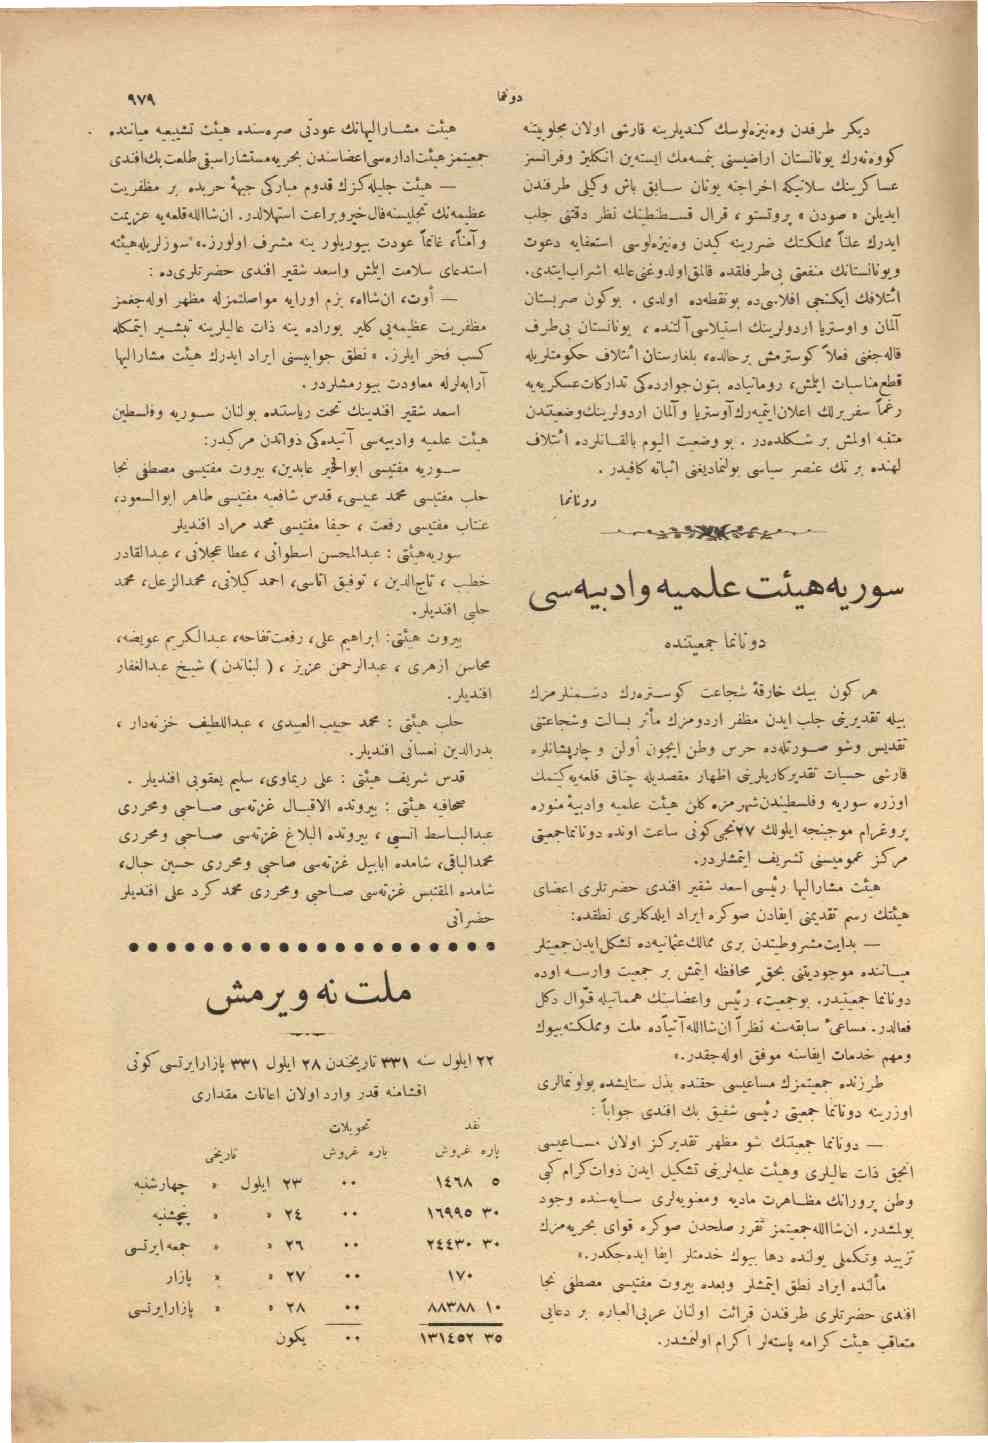 دونما
٩٧٩
ديكر طرفدن وه نيزه لوسك كنديلرينه قارشى اولان مجلوبيتنه
كووه نه رك يونانستان اراضيسنى بنمسه مك ايسته ين انكليز وفرانسز
عساكرينك سلانيكه اخراجنه يونان سابق باش وكلى طرفندن
ايديلن « صودن » پروتستو ، قرال قسطنطينك نظر دقتنى جلب
ايدرك علناً مملكتك ضررينه كيدن وه نيزه لوسى استعفايه دعوت
ويونانستانك منفعتى بى طرفلقده قالمق اولدوغنى عالمه اشراب ايتدى.
ائتلافك ايكنجى افلاسى ده بو نقطه ده اولدى . بوكون صربستان
آلمان و اوستريا اردولرينك استيلاسى آلتنده ، يونانستان بى طرف
قاله جغنى فعلاً كوسترمش برحالده، بلغارستان ائتلاف حكومتلريله
قطع مناسبات ايتمش، رومانياده بتون جوارده كى تداركات عسكريه يه
رغماً سفربرلك اعلان ايتميه رك آوستريا و آلمان اردولرينك وضعيتندن
متنبه اولمش بر شكلده در . بو وضعيت اليوم بالقانلرده ائتلاف
لهنده بر تك عنصر سياسى بولنماديغنى اثباته كافيدر .
دونانما
سوريه هيئت علميه وادبيه سى
دونانما جمعيتنده
هر كون بيك خارقهٔ شجاعت كوستره رك دشمنلرمزك
بيله تقديرينى جلب ايدن مظفر اردومزك مآثر بسالت وشجاعتنى
تقديس وشو صورتله ده حرس وطن ايچون اولن و چارپيشانلره
قارشى حسيات تقديركاريلرينى اظهار مقصديله چناق قلعه يه كيتمك
اوزره سوريه وفلسطيندن شهرمزه كلن هيئت علميه وادبيهٔ منوره
پروغرام موجبنجه ايلولك ٢٧نجى كونى ساعت اونده دونانما جمعيتى
مركز عموميسنى تشريف ايتمشلردر.
هيئت مشاراليها رئيسى اسعد شقير افندى حضرتلرى اعضاى
هيئتك رسم تقديمنى ايفادن صوكره ايراد ايلدكلرى نطقده:
— بدايت مشروطيتدن برى ممالك عثمانيه ده تشكل ايدن جمعيتلر
مياننده موجوديتنى بحق محافظه ايتمش بر جمعيت وارسه اوده
دونانما جمعيتيدر. بوجمعيت، رئيس واعضاسنك همماتيله قوال دكل
فعالدر. مساعىٔ سابقه سنه نظراً ان شاالله آتياًده ملت ومملكته بيوك
ومهم خدمات ايفاسنه موفق اوله جقدر.»
طرزنده جمعيتمزك مساعيسى حقنده بذل ستايشده بولونمالرى
اوزرينه دونانما جمعيتى رئيسى شفيق بك افندى جواباً :
— دونانما جمعيتنك شو مظهر تقديركز اولان مساعيسى
انجق ذات عاليلرى وهيئت عليه لرينى تشكيل ايدن ذوات كرام كبى
وطن پرورانك مظاهرت ماديه ومعنويه لرى سايه سنده وجود
بولمشدر. ان شاالله جمعيتمز تقرر صلحدن صوكره قواى بحريه مزك
تزييد وتكملى يولنده دها بيوك خدمتلر ايفا ايده جكدر.»
مآلنده ايراد نطق ايتمشلر وبعده بيروت مفتيسى مصطفى نجا
افندى حضرتلرى طرفندن قرائت اولنان عربى العباره بر دعايى
متعاقب هيئت كرامه پاسته لر اكرام اولنمشدر.
هيئت مشاراليهانك عودتى صره سنده هيئت تشييعيه مياننده
جمعيتمز هيئت اداره سى اعضاسندن بحريه مستشار اسبقى طلعت بك افندى
— هيئت جليله كزك قدوم مباركى جبههٔ حربده بر مظفريت
عظيمه نك تجليسنه فال خير و براعت استهلالدر. ان شاالله قلعه يه عزيمت
وآمناً، غانماً عودت بيوريلور ينه مشرف اولورز.» سوزلريله هيئته
استدعاى سلامت ايتمش واسعد شقير افندى حضرتلرى ده :
— أوت، ان شاالله، بزم اورايه مواصلتمزله مظهر اوله جغمز
مظفريت عظيمه يى كلير بوراده ينه ذات عاليلرينه تبشير ايتمكله
كسب فخر ايلرز. » نطق جوابيسنى ايراد ايدرك هيئت مشاراليها
آرابه لرله معاودت بيورمشلردر .
اسعد شقير افندينك تحت رياستنده بولنان سوريه وفلسطين
هيئت علميه وادبيه سى آتيده كى ذواتدن مركبدر:
سوريه مفتيسى ابوالخير عابدين، بيروت مفتيسى مصطفى نجا
حلب مفتيسى محمد عبيسى، قدس شافعيه مفتيسى طاهر ابوالسعود،
عنتاب مفتيسى رفعت ، حيفا مفتيسى محمد مراد افنديلر
سوريه هيئتى : عبدالمحسن اسطوانى ، عطا عجلانى ، عبدالقادر
خطيب ، تاج الدين ، توفيق اتاسى، احمد كيلانى، محمدالزعل، محمد
حلبى افنديلر.
بيروت هيئتى: ابراهيم على، رفعت تفاحه، عبدالكريم عويضه،
محاسن ازهرى ، عبدالرحمن عزيز ، ( لبناندن ) شيخ عبدالغفار
افنديلر.
حلب هيئتى : محمد حبيب العبيدى ، عبداللطيف خزنه دار ،
بدرالدين نعسانى افنديلر.
قدس شريف هيئتى : على ريماوى، سليم يعقوبى افنديلر .
صحافيه هيئتى : بيروتده الاقبال غزته سى صاحبى ومحررى
عبدالباسط انسى ، بيروتده البلاغ غزته سى صاحبى ومحررى
محمدالباقى، شامده ابابيل غزته سى صاحبى ومحررى حسين حبال،
شامده المقتبس غزته سى صاحبى ومحررى محمد كرد على افنديلر
حضراتى
ملت نه ويرمش
٢٢ ايلول سنه ٣٣١ تاريخندن ٢٨ ايلول ٣٣١ پازارايرتسى كونى
اقشامنه قدر وارد اولان اعانات مقدارى
نقد تحويلات
پاره غروش پاره غروش تاريخى
٥ ١٤٦٨ ٠٠ ٢٣ ايلول » چهارشنبه
٣٠ ١٦٩٩٥ ٠٠ ٢٤ » » پنچشنبه
٣٠ ٢٤٤٣٠ ٠٠ ٢٦ » » جمعه ايرتسى
١٧٠ ٠٠ ٢٧ » » پازار
١٠ ٨٨٣٨٨ ٠٠ ٢٨ » » پازارايرتسى
٣٥ ١٣١٤٥٢ ٠٠ يكون